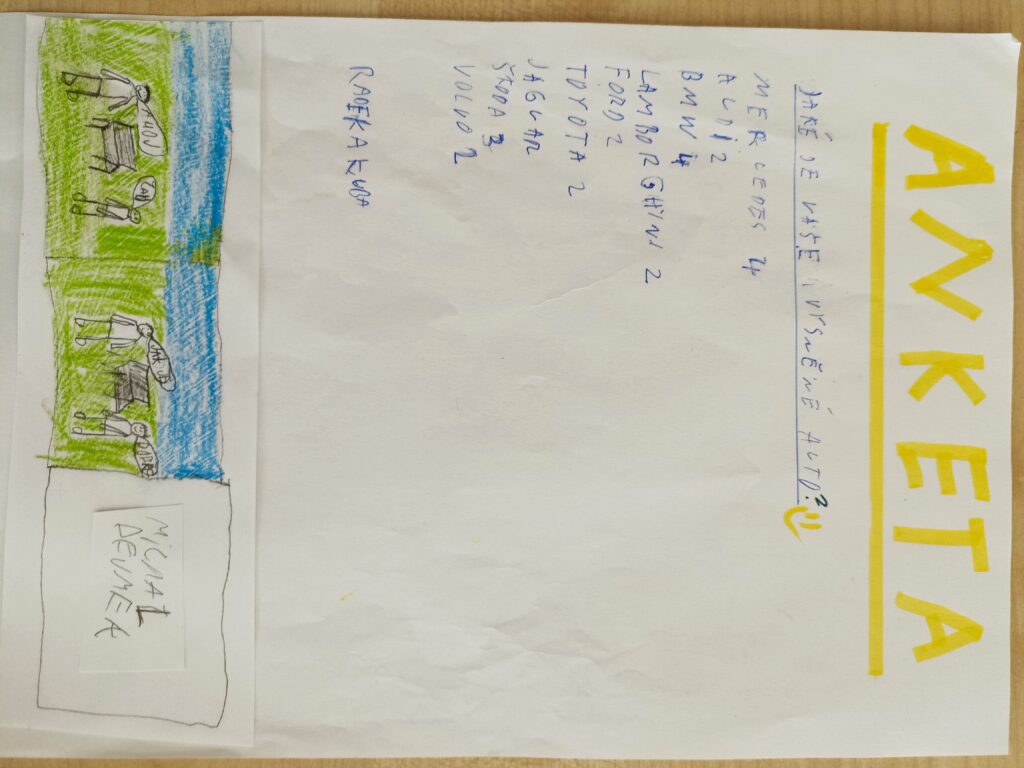 ANKETA
JAKÉ JE VAŠE VYSNĚNÉ AUTO?
MERCEDES 4
AUDI 2
BMW 4
LAMBORGHINI 2
FORD 2
TOYOTA 2
JAGUAR
ŠKODA 3
VOLVO 2
RADEK A KUBA
AHOJ
MICHAL